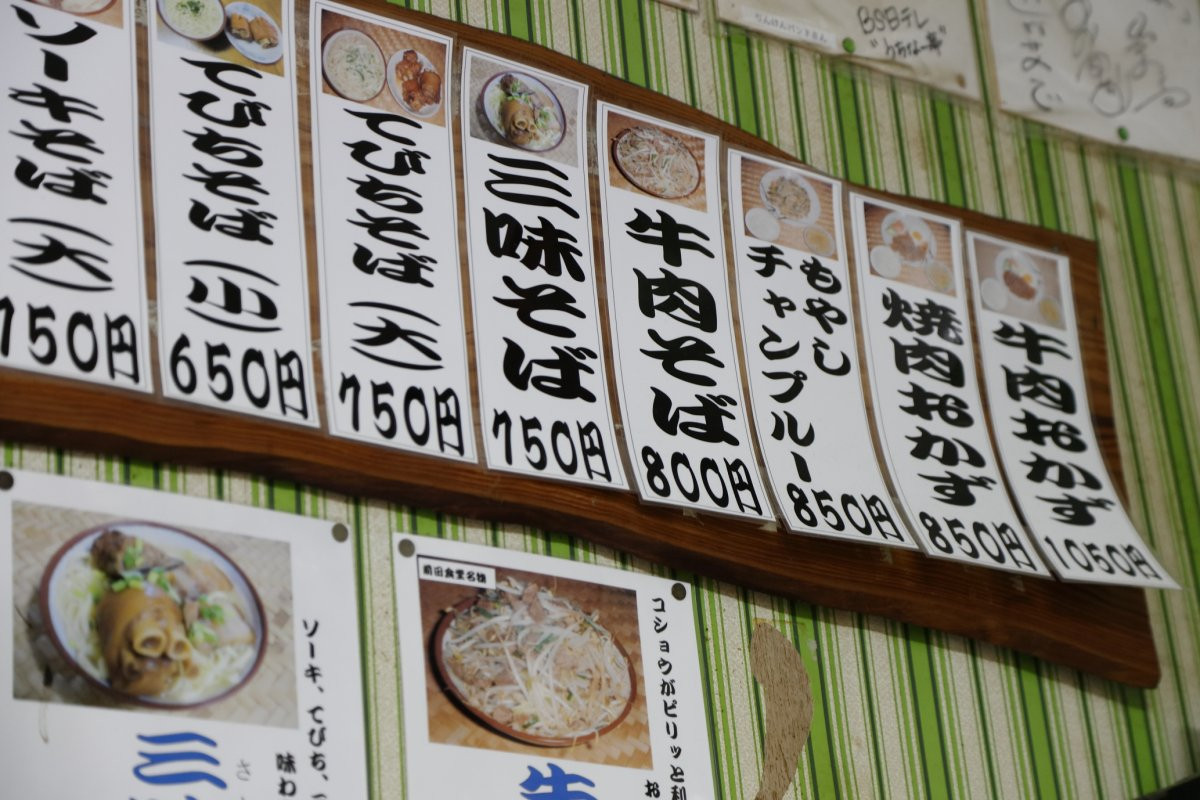 ソーキそば(大)
750円
てびちそば(小)
650円
てびちそば(大)
750円
三味そば
750円
牛肉そば
800円
もやし
チャンプルー
850円
焼肉おかず
850円
牛肉おかず
1050円
BSBテレ
ソーキ、てびち、
味わ
三
さ
前田食堂名物
コショウがピリッと利
お
牛